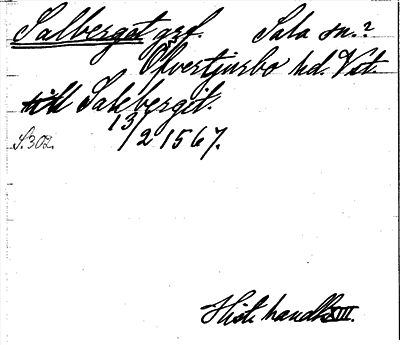 Salberget grf. Sala sn.?
Öfvertjurbo hd. Vst.
till Salebergit.
13/2 1567.
S. 302.
Hist. handl. XIII.